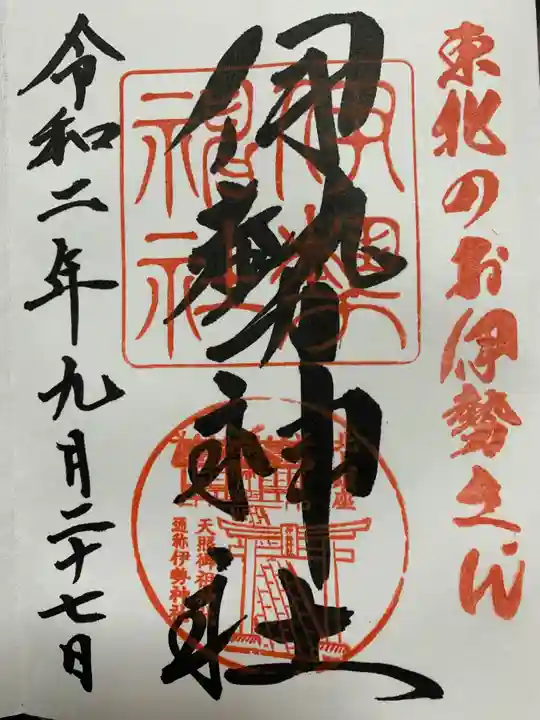 東北のお伊勢さん
伊勢神社
伊勢
神社
天照御祖
通称伊勢神社
令和二年九月二十七日